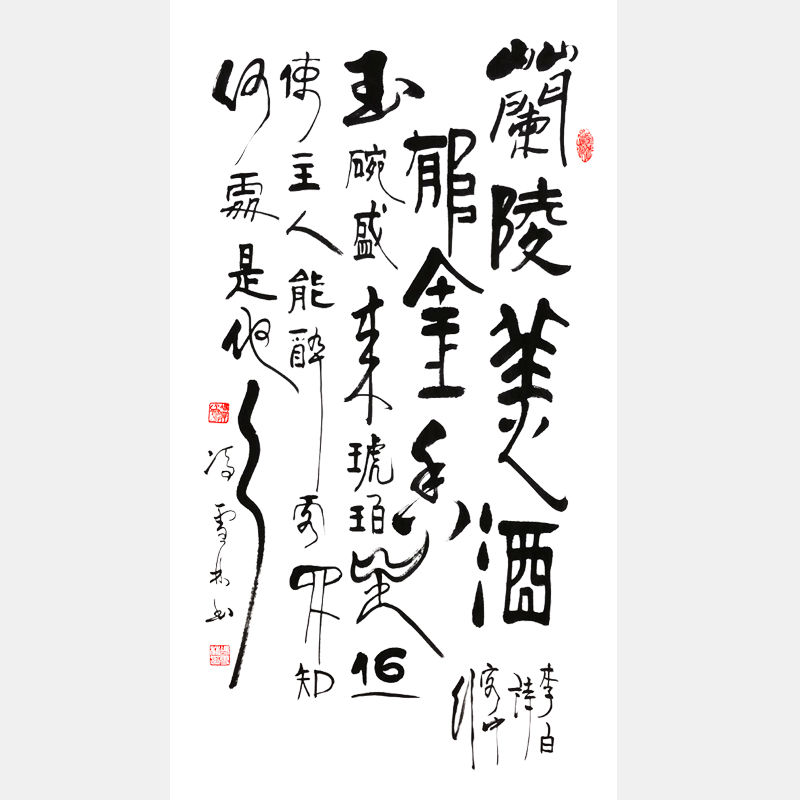 蘭陵美酒
郁金香
玉碗盛来琥珀光但
使主人能醉客不知
何處是他鄉
李白
詩
客中
行
馮雪林书